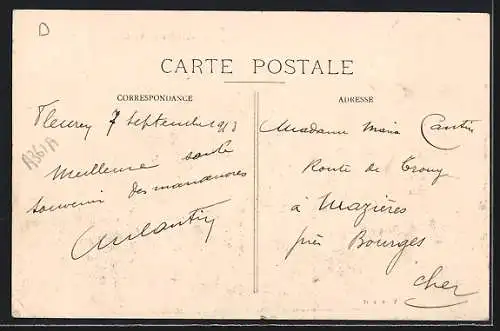 D
CARTE POSTALE
CORRESPONDANCE
ADRESSE
Fleurey 7 Septembre 1913
Meilleure santé
souvenir des manœuvres
A361A
Madame Maria Cantin
Route de Crouy
à Mazières
près Bourges
Cher